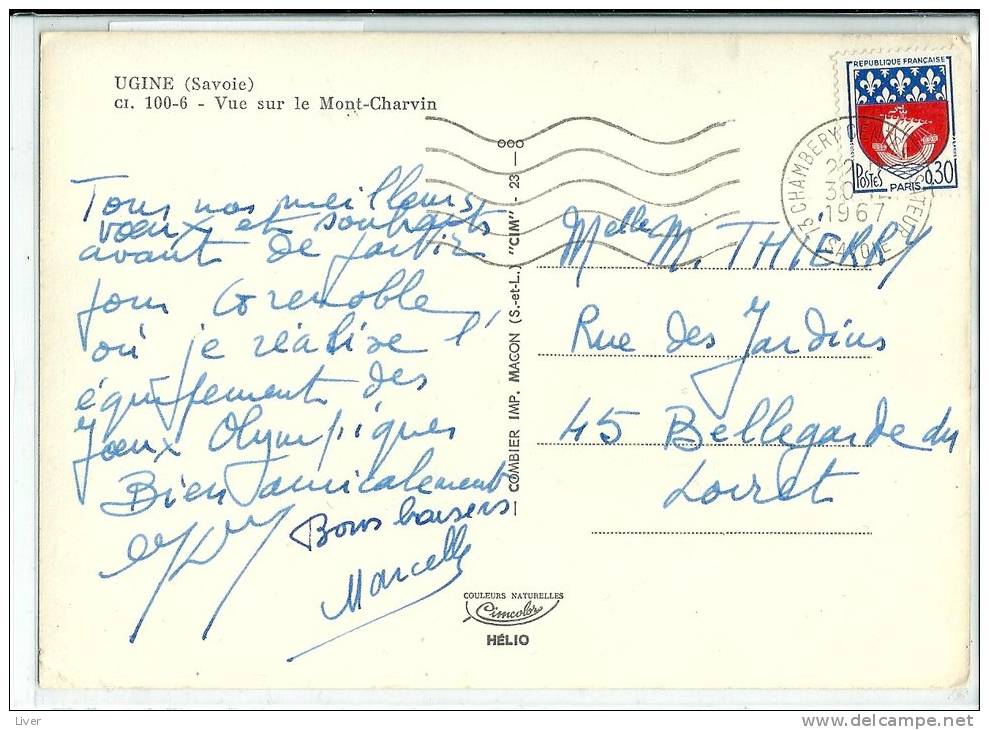 UGINE (Savoie)
CI. 100-6 - Vue sur le Mont-Charvin
REPUBLIQUE FRANÇAISE
POSTES
PARIS
0,30
73 CHAMBERY
30
1967
SAVOIE
Tous nos meilleurs
vœux et souhaits
avant de partir
pour Grenoble
où je réalise l'
équipement des
Jeux Olympiques
Bien amicalement
Bons baisers
Marcelle
COMBIER IMP. MACON (S.-et-L.) "CIM" - 23
Melle M. THIERRY
Rue des Jardins
45 Bellegarde du
Loiret
COULEURS NATURELLES
Cimcolor
HÉLIO
Liver
http://www.delcampe.net